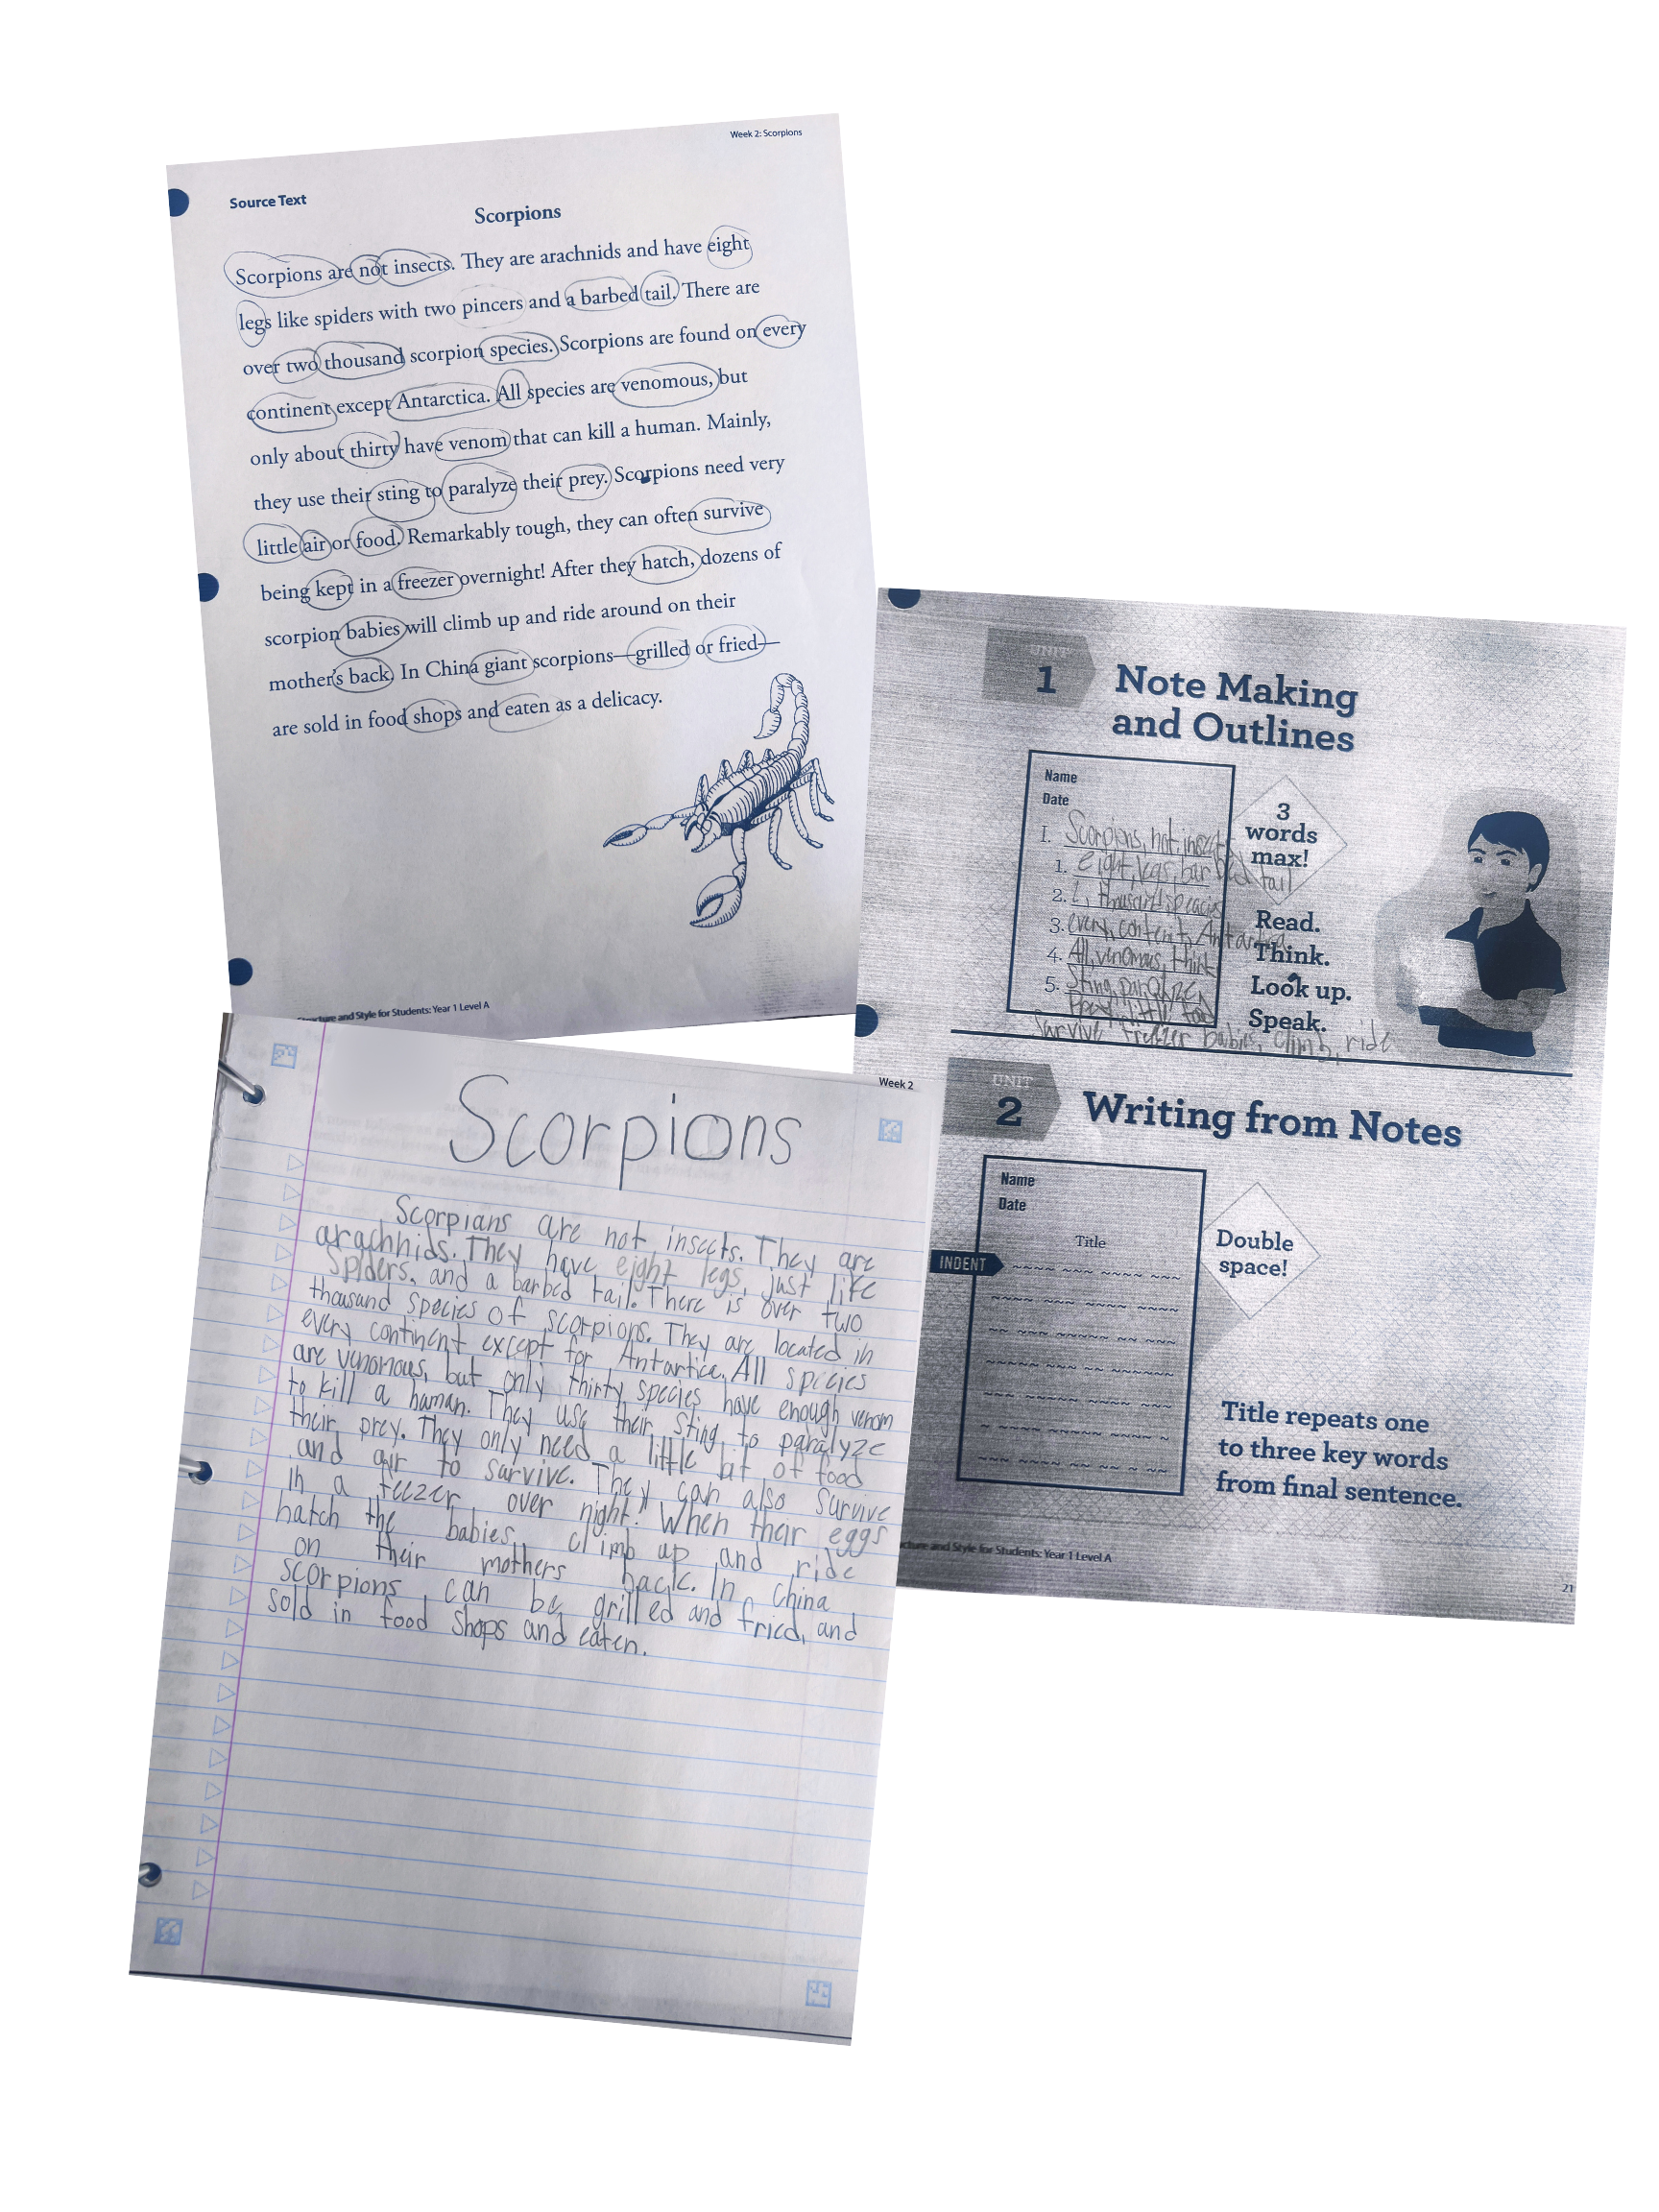 Week 2: Scorpions
Source Text
Scorpions
Scorpions are not insects. They are arachnids and have eight
legs like spiders with two pincers and a barbed tail. There are
over two thousand scorpion species. Scorpions are found on every
continent except Antarctica. All species are venomous, but
only about thirty have venom that can kill a human. Mainly,
they use their sting to paralyze their prey. Scorpions need very
little air or food. Remarkably tough, they can often survive
being kept in a freezer overnight! After they hatch, dozens of
scorpion babies will climb up and ride around on their
mother's back. In China giant scorpions—grilled or fried—
are sold in food shops and eaten as a delicacy.
and Style for Students: Year 1 Level A
UNIT
1
Note Making
and Outlines
Name
Date
I. Scorpions, not, insect
1. eight, legs, barbed tail
2. 2, thousand species
3. every, contient, Antartica
4. All, venomous, thirt
5. Sting, paralyze
prey, little food
Survive freezer babies, climb, ride
3
words
max!
Read.
Think.
Look up.
Speak.
Week 2
UNIT
2
Writing from Notes
Name
Date
Title
INDENT
Double
space!
Title repeats one
to three key words
from final sentence.
and Style for Students: Year 1 Level A
21
Scorpions
Scorpians are not insects. They are
arachnids. They have eight legs, just like
Spiders, and a barbed tail. There is over two
thousand species of scorpions. They are located in
every continent except for Antartica. All species
are venomous, but only thirty species have enough venom
to kill a human. They use their sting to paralyze
their prey. They only need a little bit of food
and air to survive. They can also survive
in a feezer over night! When their eggs
hatch the babies climb up and ride
on their mothers back. In China
scorpions can be grilled and fried, and
sold in food shops and eaten.